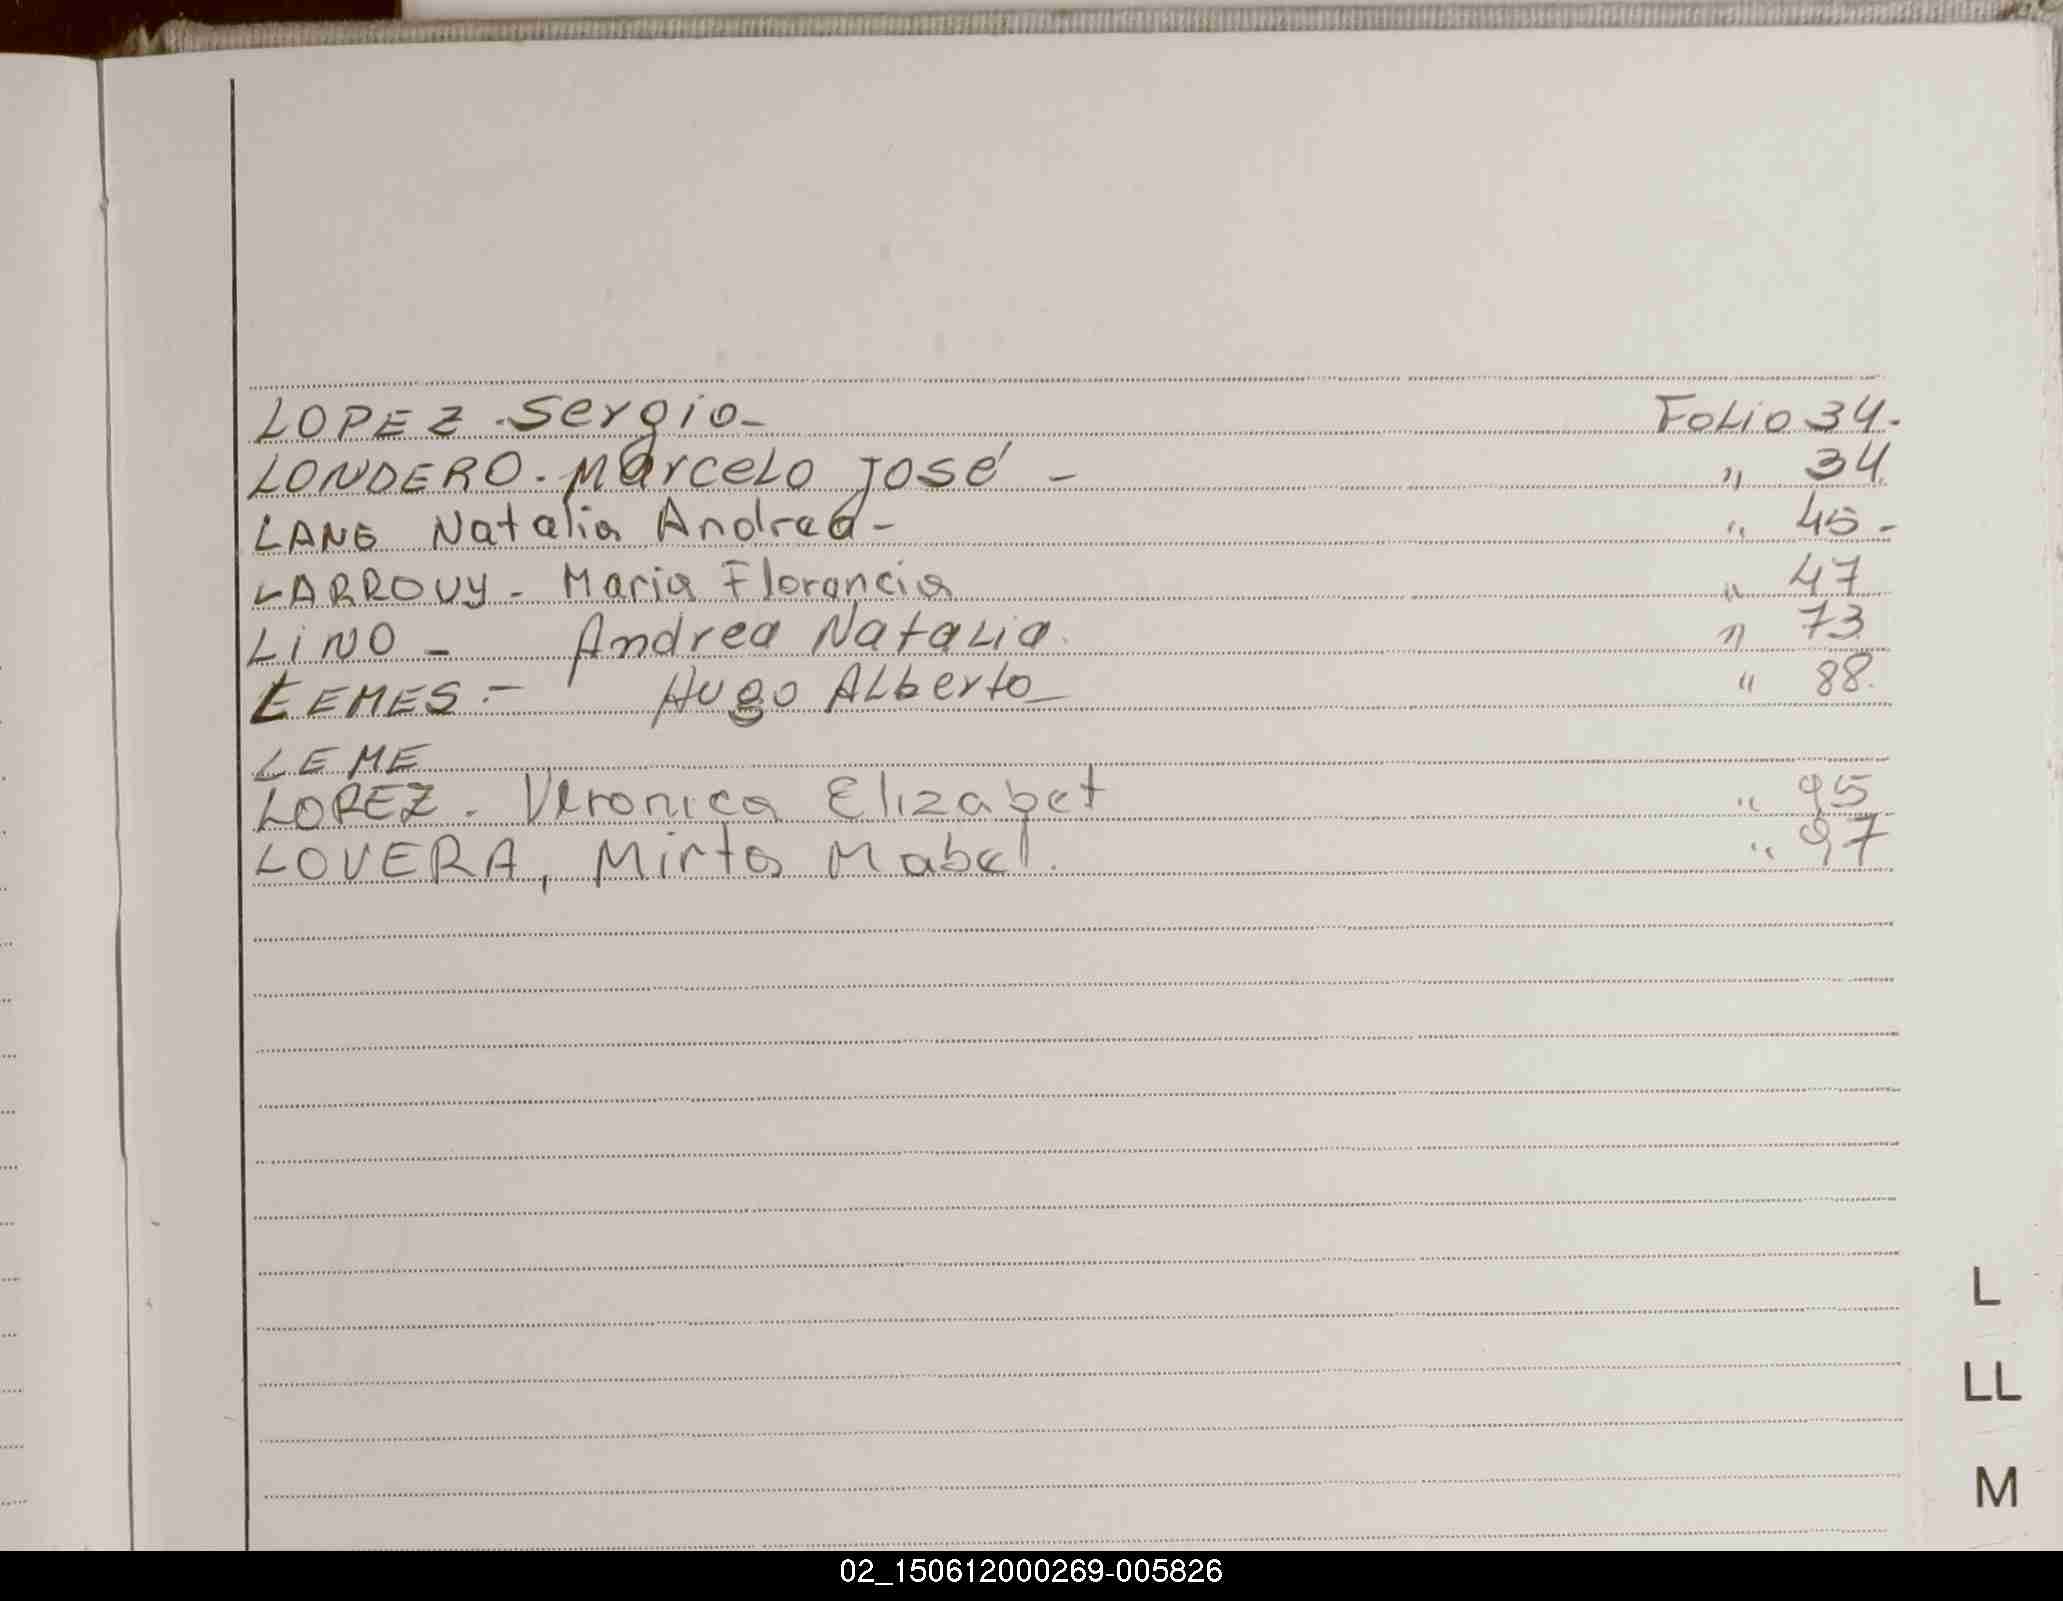 LOPEZ - Sergio - Folio 34.
LONDERO - Marcelo José - " 34.
LANG Natalia Andrea - " 45 -
LARROUY - Maria Florencia " 47
LINO - Andrea Natalia. " 73
LEMES - Hugo Alberto - " 88.
LEME
LOPEZ - Veronica Elizabet " 95
LOVERA, Mirta Mabel. " 97
L
LL
M
02_150612000269-005826